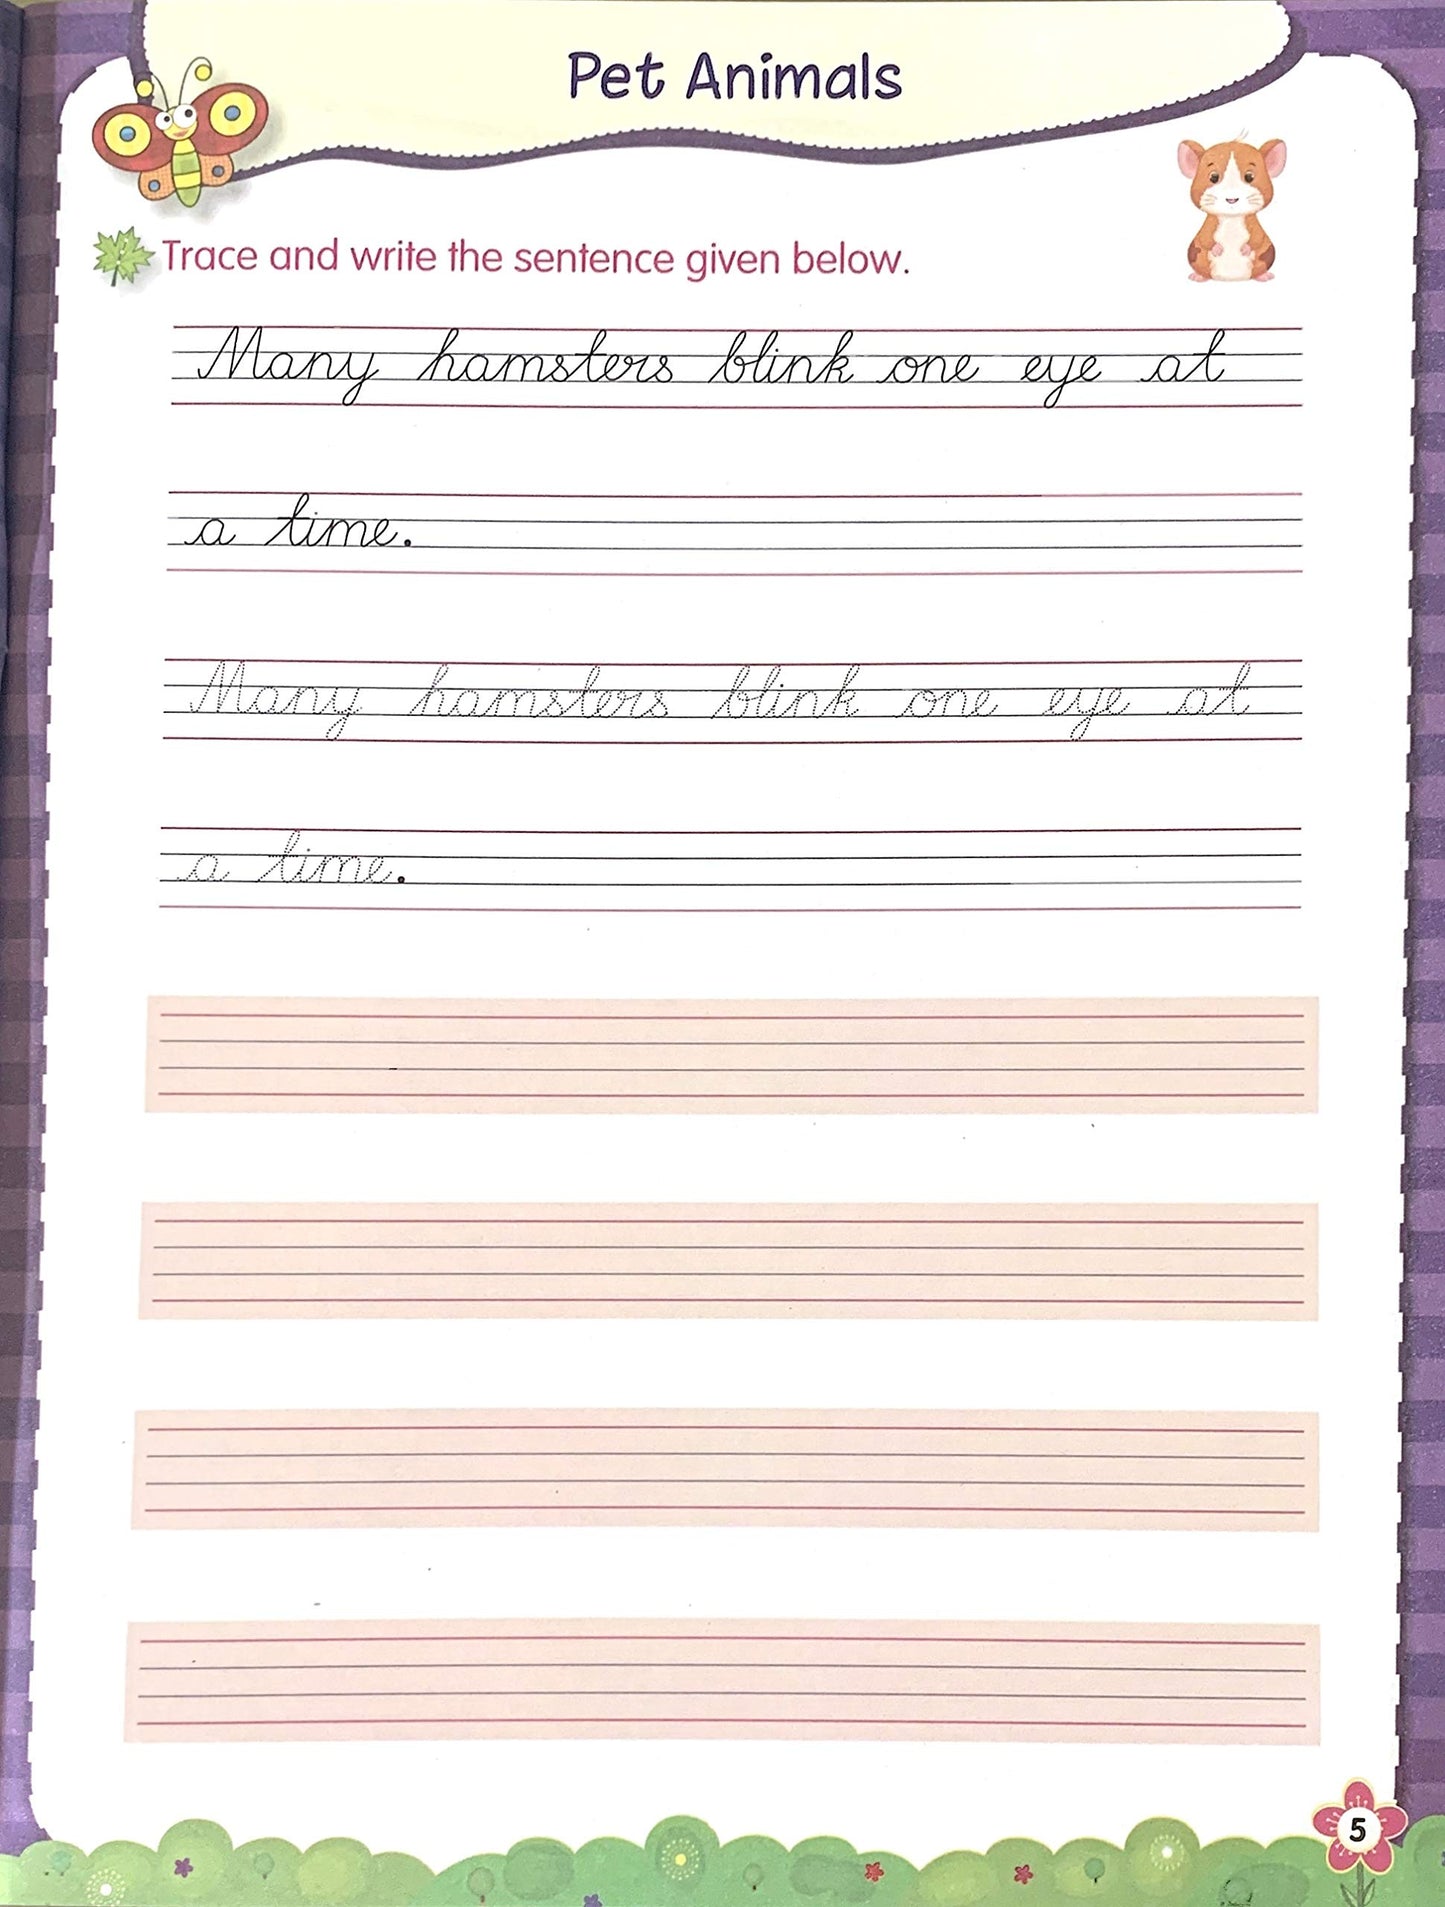 Pet Animals
Trace and write the sentence given below.
Many hamsters blink one eye at
a time.
Many hamsters blink one eye at
a time.
5